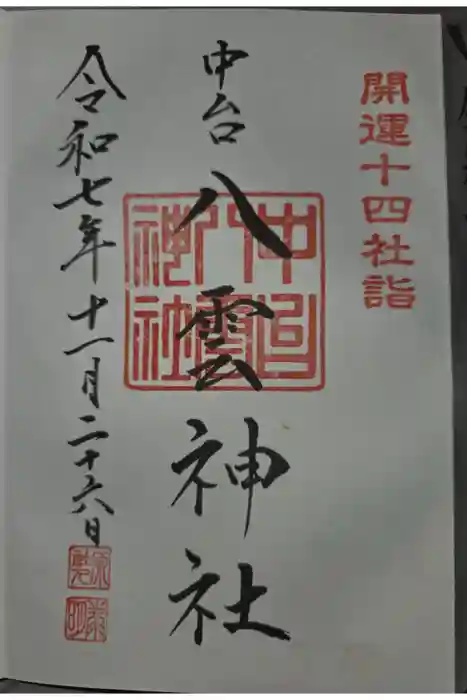 開運十四社詣
中台
八雲神社
仲台
八雲
神社
令和七年十一月二十六日